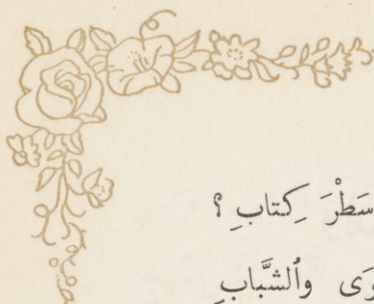 سَطْرَ كِتابِ ؟
وَٱلشَّبابِ